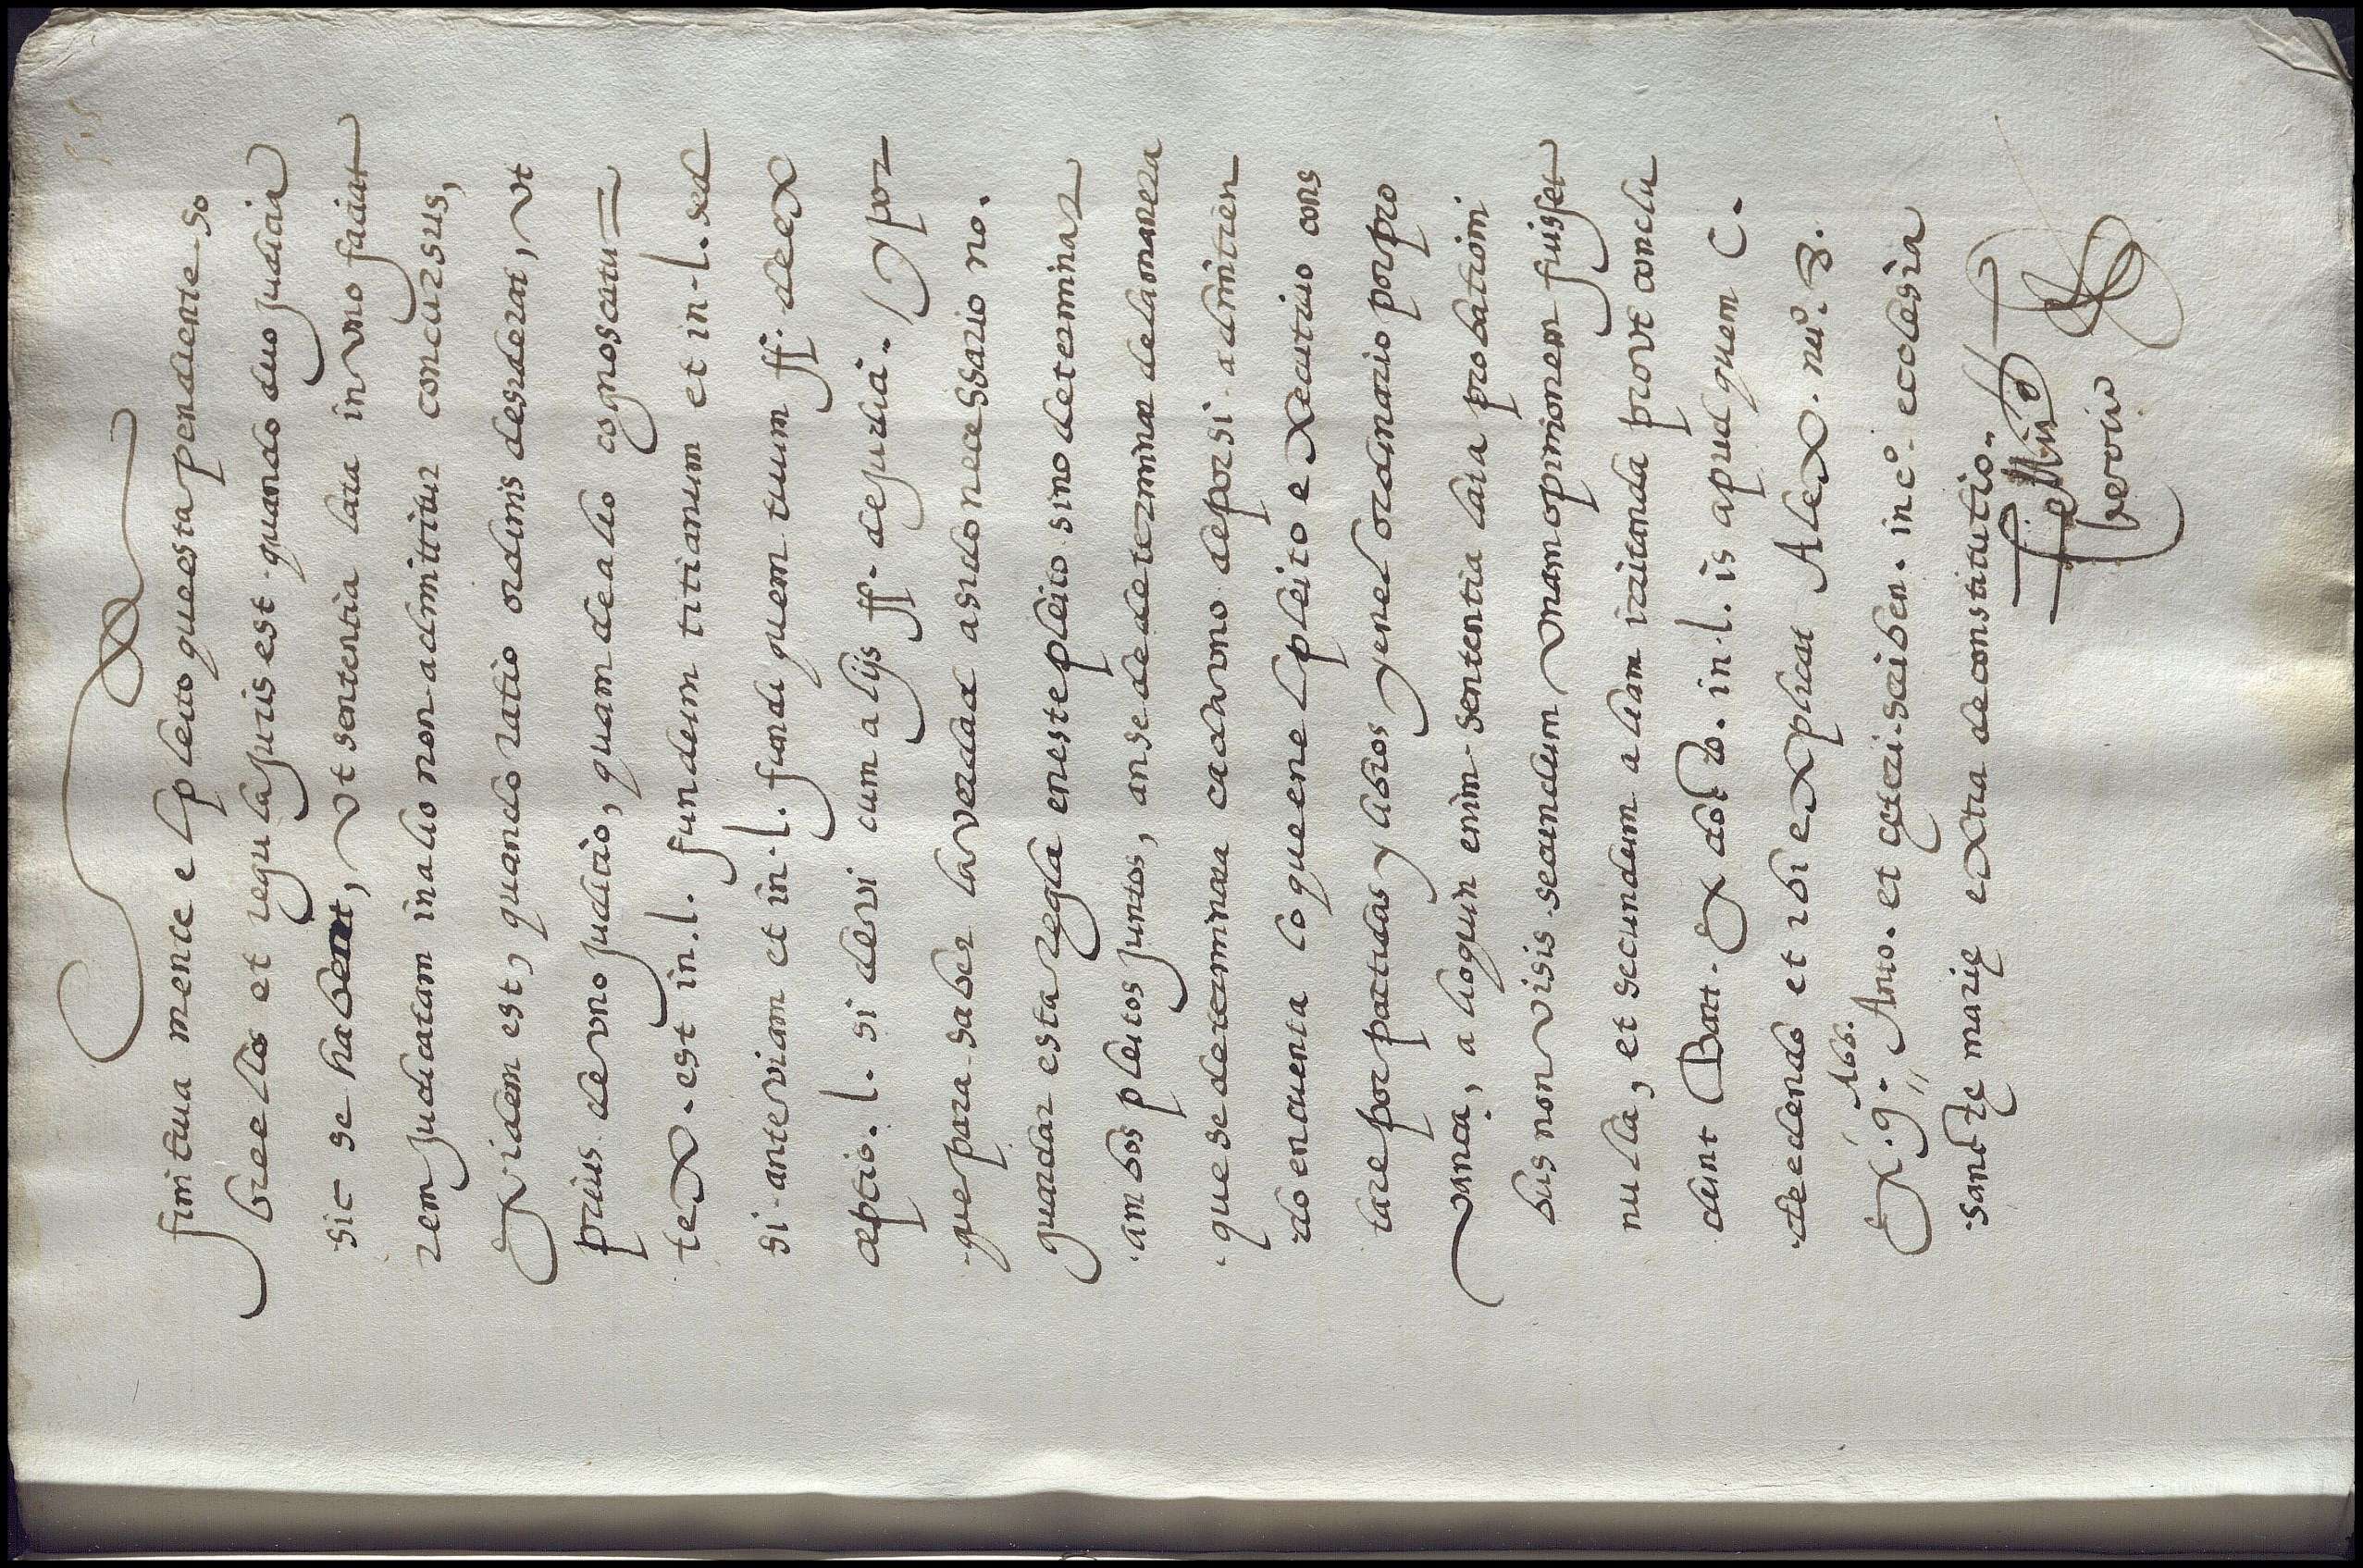 finitiua mente el pleito que esta pendiente so
bre ello et regula juris est quando duo judicia
sic se habent, vt sententia lata in vno faciat
rem judicatam in alio non admittitur concursus,
& videm est, quando ratio ordinis desiderat, vt
prius de vno juditio, quam de alio cognoscatu=
tex. est in. l. fundum titianum et in. l. sed
si ante viam et in. l. fundi quem tuum ff. de ex
ceptio. l. si de vi cum alijs ff. de judiciâ. / y por
que para saber la verdad assi do necessario no.
guardar esta regla en este pleito sino determinar
ambos pleitos juntos, an se de determinar de la manera
que se determinara cada vno de por si admitien
do en cuenta lo que en el pleito executiuo cons
tare por partidas y libros y en el ordinario por pro
vanca, alioquin enim sententia lata probationi
bus non visis secundum vnam opinionem fuisset
nulla, et secundum aliam irritanda prout conclu
dunt Bart. & doct. in. l. is apud quem C.
de edendo et ibi explicat Alex. nuº. 3.
& .9. Abb. Anto. et ceteri scriben. in cº. ecclesia
sanctę marię extra de constitutio.